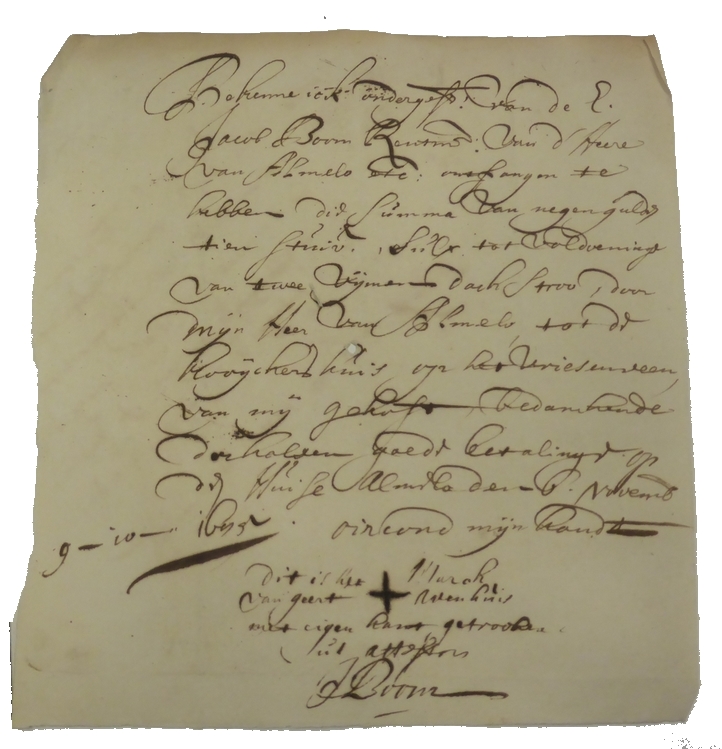 Bekenne ick ondergesz. van de E.
Jacob Boom Rentmr. van d' Heere
van Almelo etc: ontfangen te
hebben die summa van negen guld
tien stuiv. , sulx tot voldoeninge
van twee vijmen dack stroo, door
mijn Heer van Almelo, tot de
Kooyckers huis op het Vriesenveen,
van mij gekoft, bedanckende
derhalven goede betalinge op
de Huise Almelo den 6. novemb
9-10- 1695 oirkond mijn handt
Dit is het + Marck
van geert Wenhuis
met eigen hant getrocken
ut attestor
J Boom